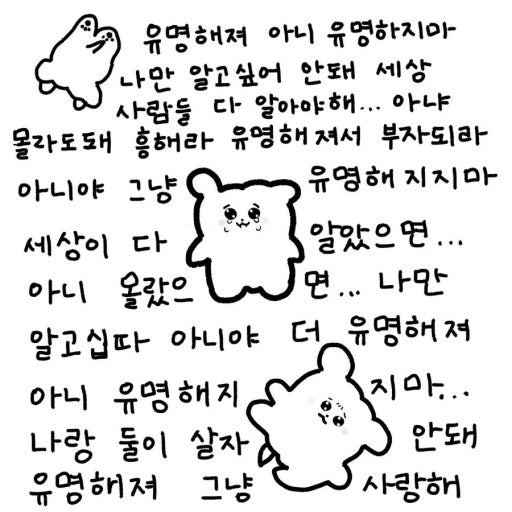 유명해져 아니 유명하지마
나만 알고싶어 안돼 세상
사람들 다 알아야해... 아냐
몰라도돼 흥해라 유명해져서 부자되라
아니야 그냥 유명해지지마
세상이 다 알았으면...
아니 올랐으면... 나만
알고십따 아니야 더 유명해져
아니 유명해지지마...
나랑 둘이 살자 안돼
유명해져 그냥 사랑해